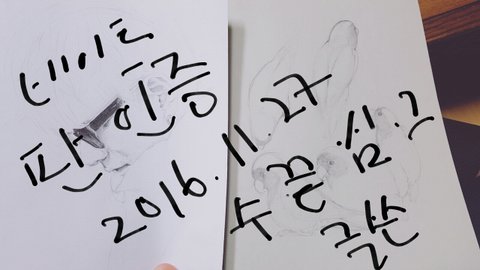 네이트
판 인증
2016.11.27
글쓴